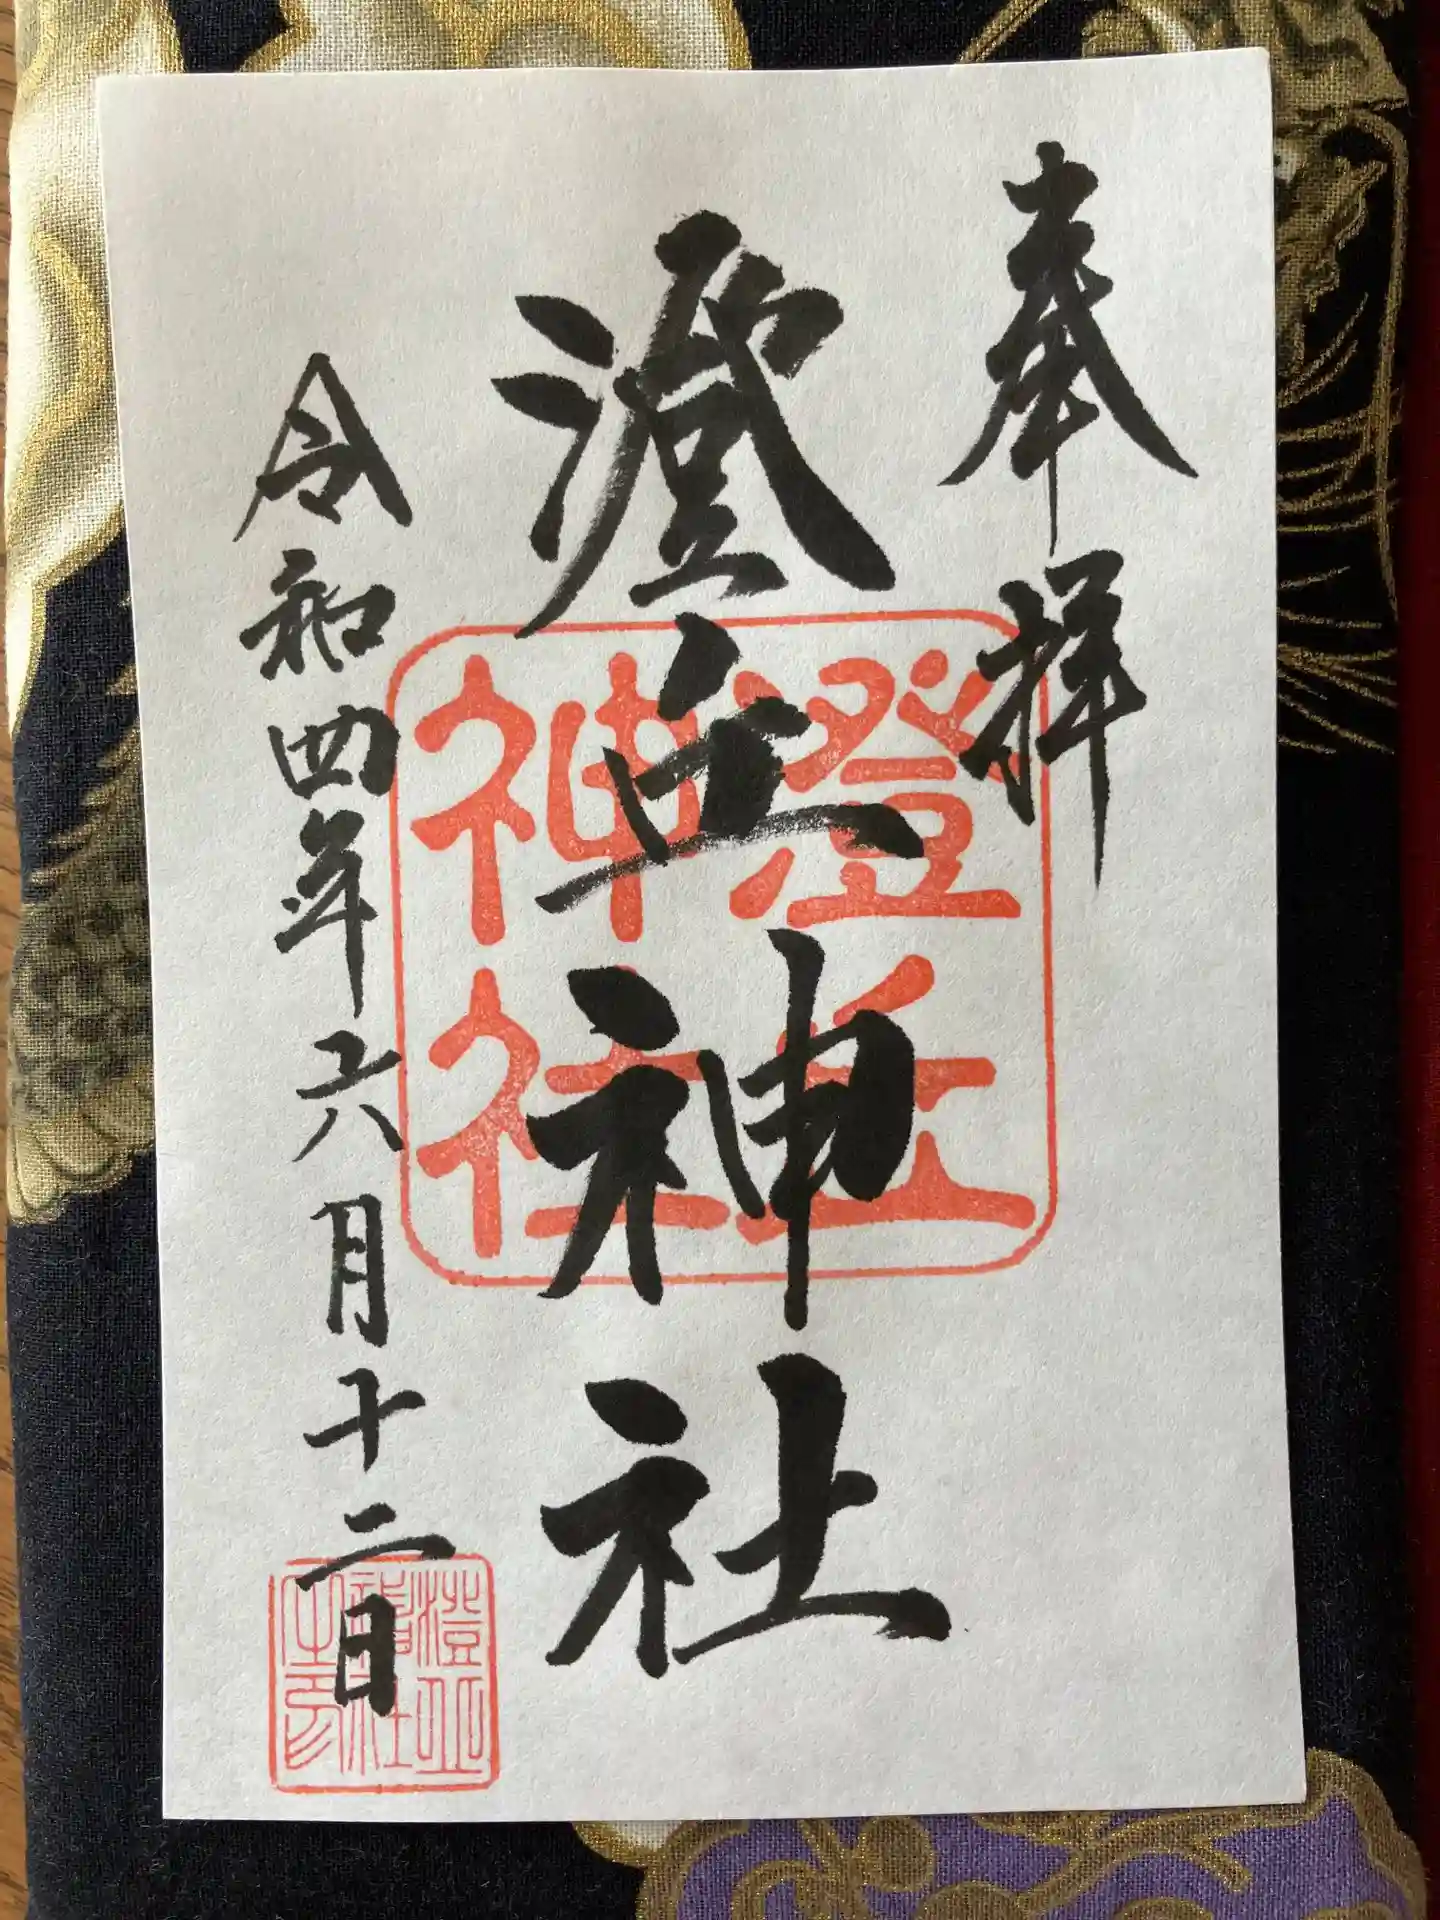 奉拝
澄丘神社
澄丘
神社
令和四年六月十二日